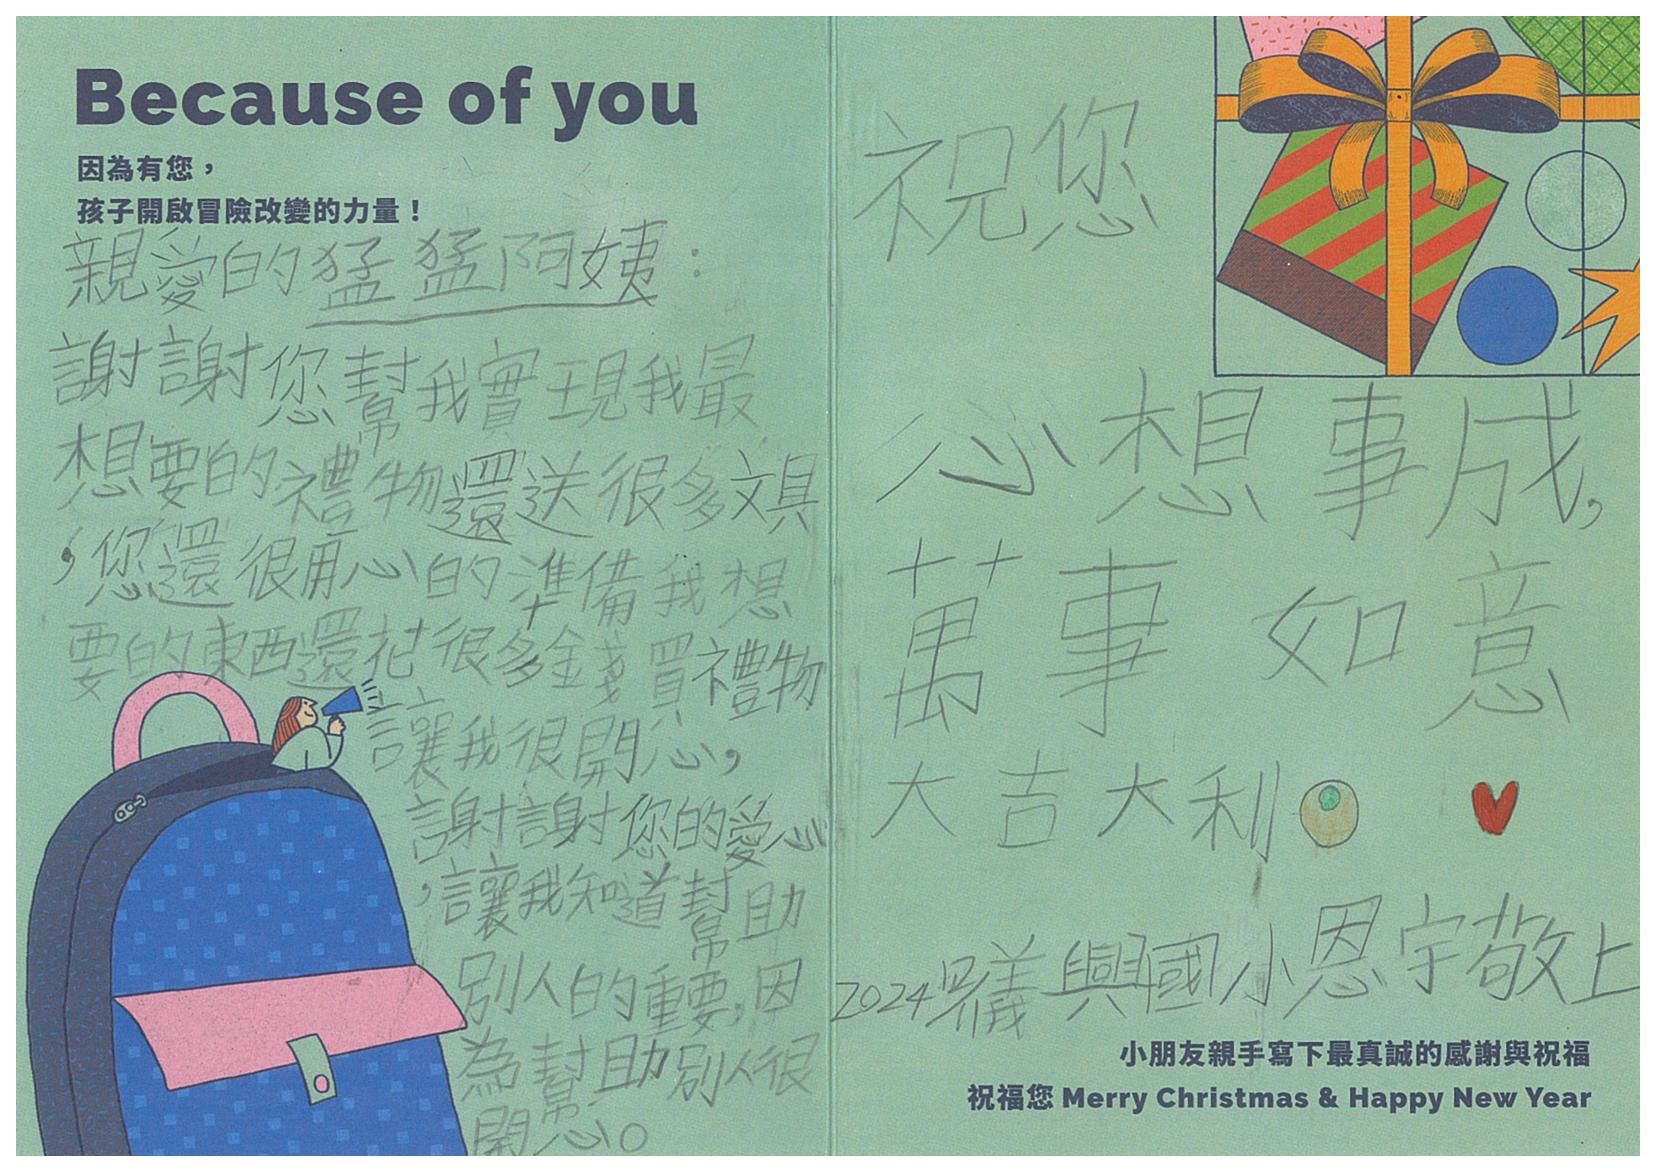 Because of you
因為有您，
孩子開啟冒險改變的力量！
親愛的猛猛阿姨：
謝謝您幫我實現我最
想要的禮物還送很多文具
，您還很用心的準備我想
要的東西還花很多金錢買禮物
讓我很開心，
謝謝您的愛心
，讓我知道幫助
別人的重要，因
為幫助別人很
開心。
祝您
心想事成，
萬事如意
大吉大利
2024 興國小恩宇敬上
小朋友親手寫下最真誠的感謝與祝福
祝福您 Merry Christmas & Happy New Year